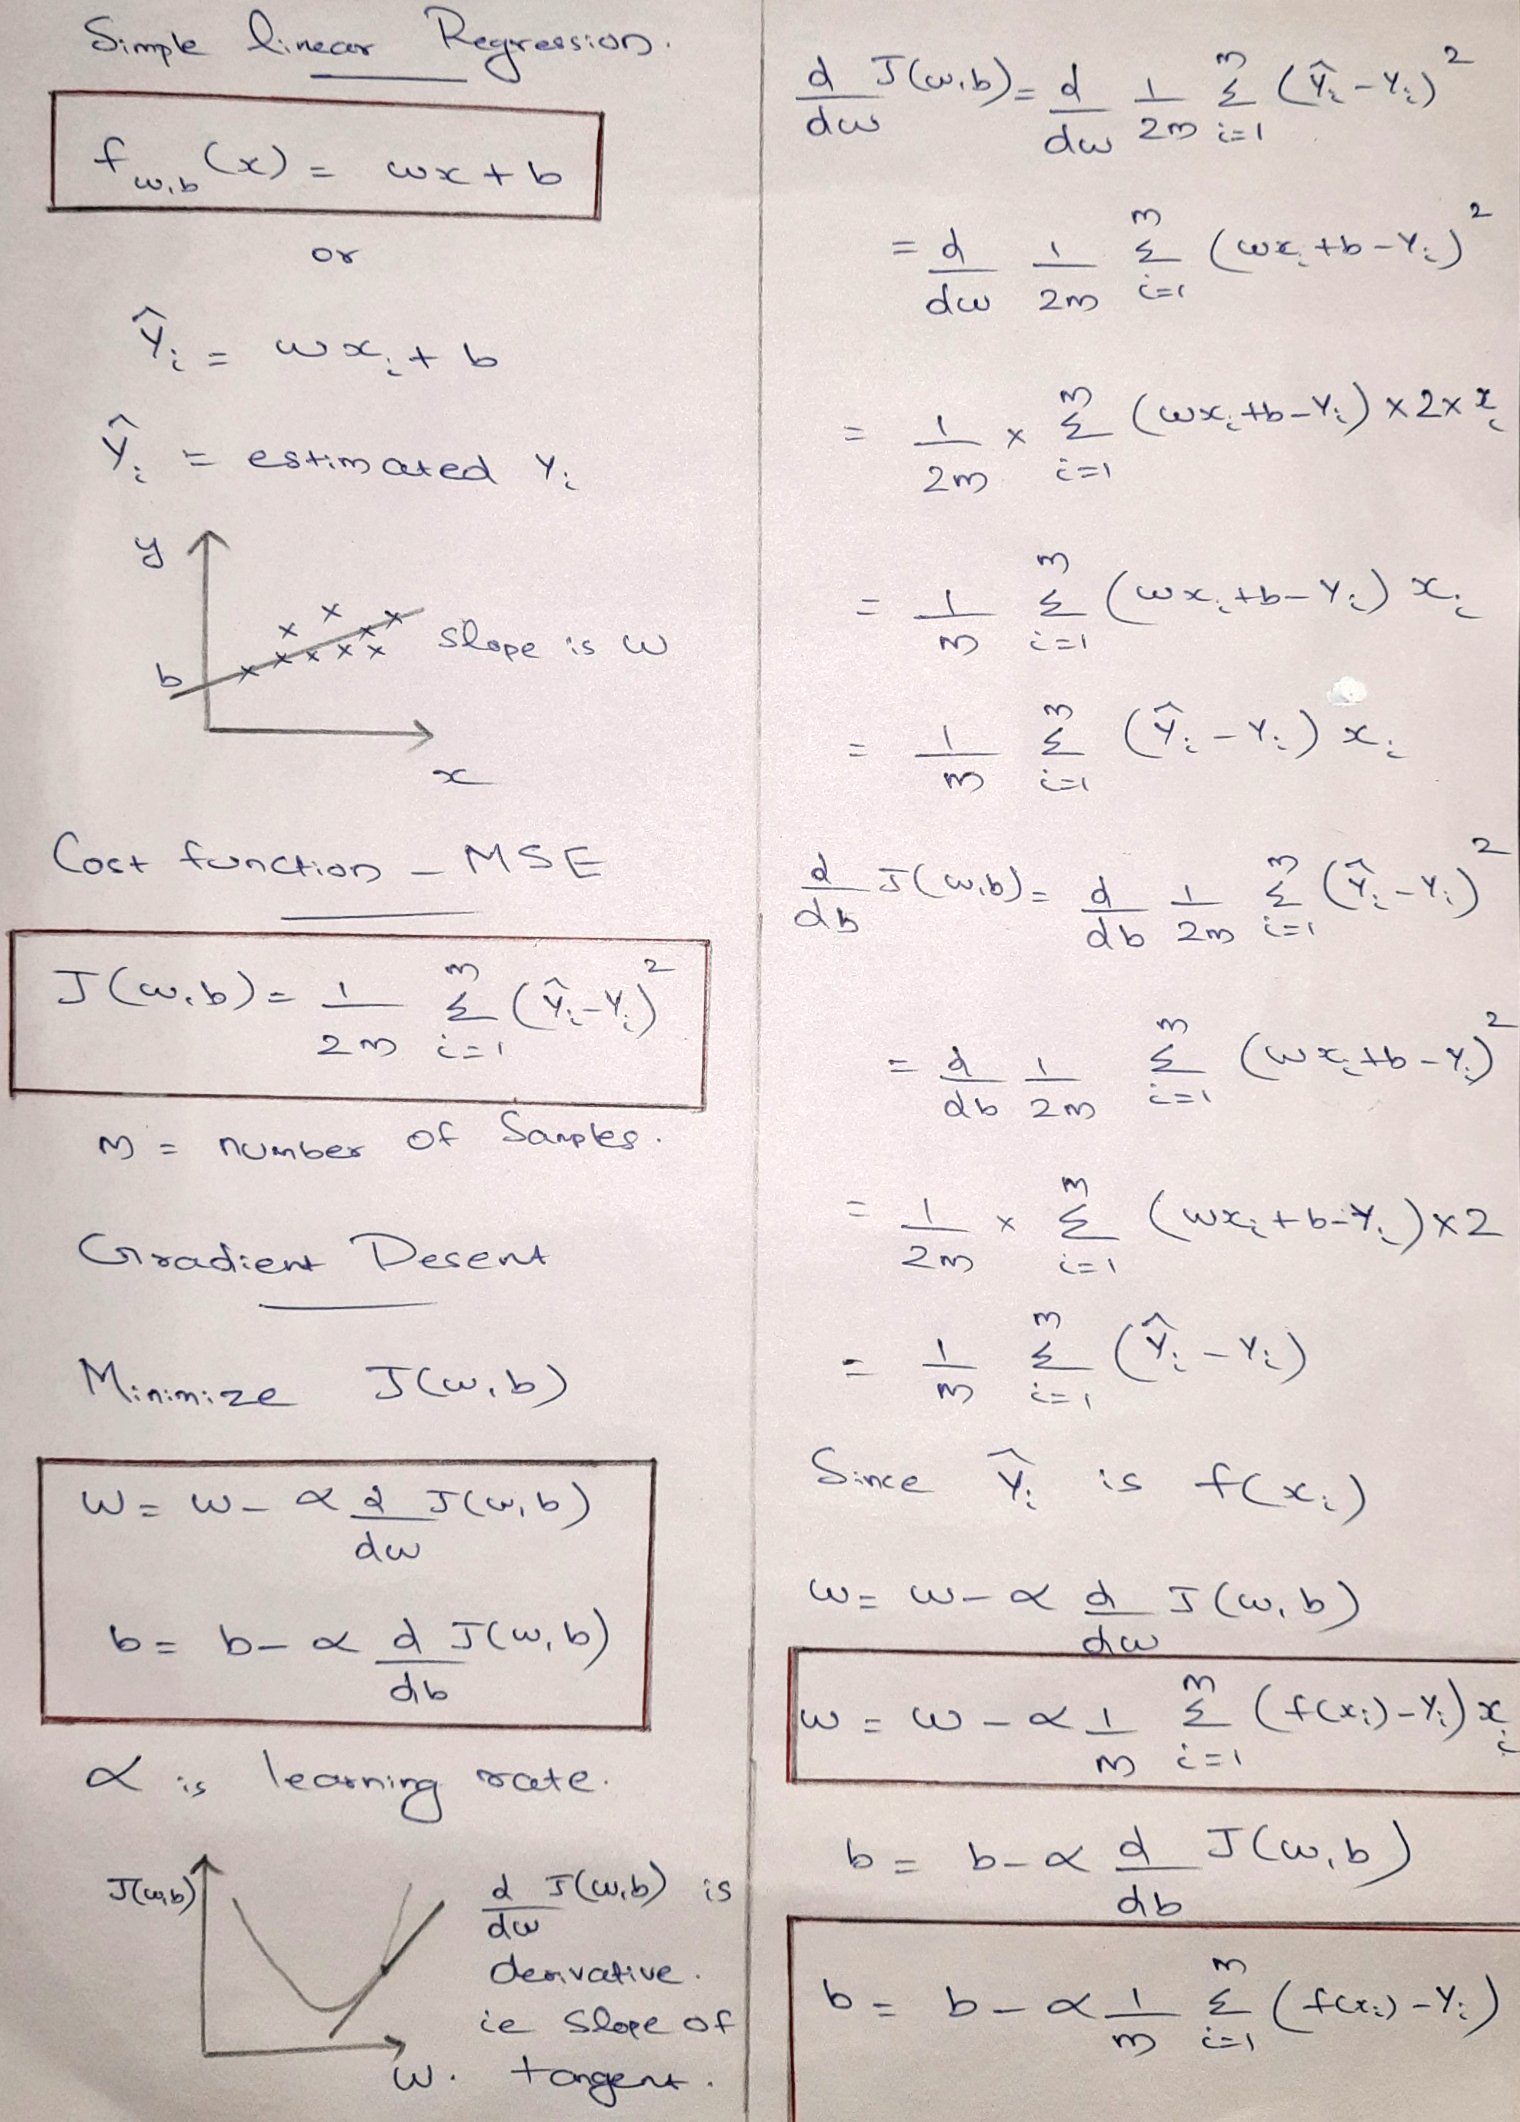 Simple linear Regression.
f_{w,b}(x) = wx + b
or
Ŷ_i = wx_i + b
Ŷ_i = estimated Y_i
y
b
slope is w
x
Cost function – MSE
J(w,b) = \frac{1}{2m} \sum_{i=1}^{m} (Ŷ_i - Y_i)^2
m = number of Samples.
Gradient Desent
Minimize J(w,b)
w = w - α \frac{d}{dw} J(w,b)
b = b - α \frac{d}{db} J(w,b)
α is learning rate.
J(w,b)
w.
\frac{d}{dw} J(w,b) is
derivative.
ie slope of
tangent.
\frac{d}{dw} J(w,b) = \frac{d}{dw} \frac{1}{2m} \sum_{i=1}^{m} (Ŷ_i - Y_i)^2
= \frac{d}{dw} \frac{1}{2m} \sum_{i=1}^{m} (wx_i + b - Y_i)^2
= \frac{1}{2m} × \sum_{i=1}^{m} (wx_i + b - Y_i) × 2 × x_i
= \frac{1}{m} \sum_{i=1}^{m} (wx_i + b - Y_i) x_i
= \frac{1}{m} \sum_{i=1}^{m} (Ŷ_i - Y_i) x_i
\frac{d}{db} J(w,b) = \frac{d}{db} \frac{1}{2m} \sum_{i=1}^{m} (Ŷ_i - Y_i)^2
= \frac{d}{db} \frac{1}{2m} \sum_{i=1}^{m} (wx_i + b - Y_i)^2
= \frac{1}{2m} × \sum_{i=1}^{m} (wx_i + b - Y_i) × 2
= \frac{1}{m} \sum_{i=1}^{m} (Ŷ_i - Y_i)
Since Ŷ_i is f(x_i)
w = w - α \frac{d}{dw} J(w,b)
w = w - α \frac{1}{m} \sum_{i=1}^{m} (f(x_i) - Y_i) x_i
b = b - α \frac{d}{db} J(w,b)
b = b - α \frac{1}{m} \sum_{i=1}^{m} (f(x_i) - Y_i)